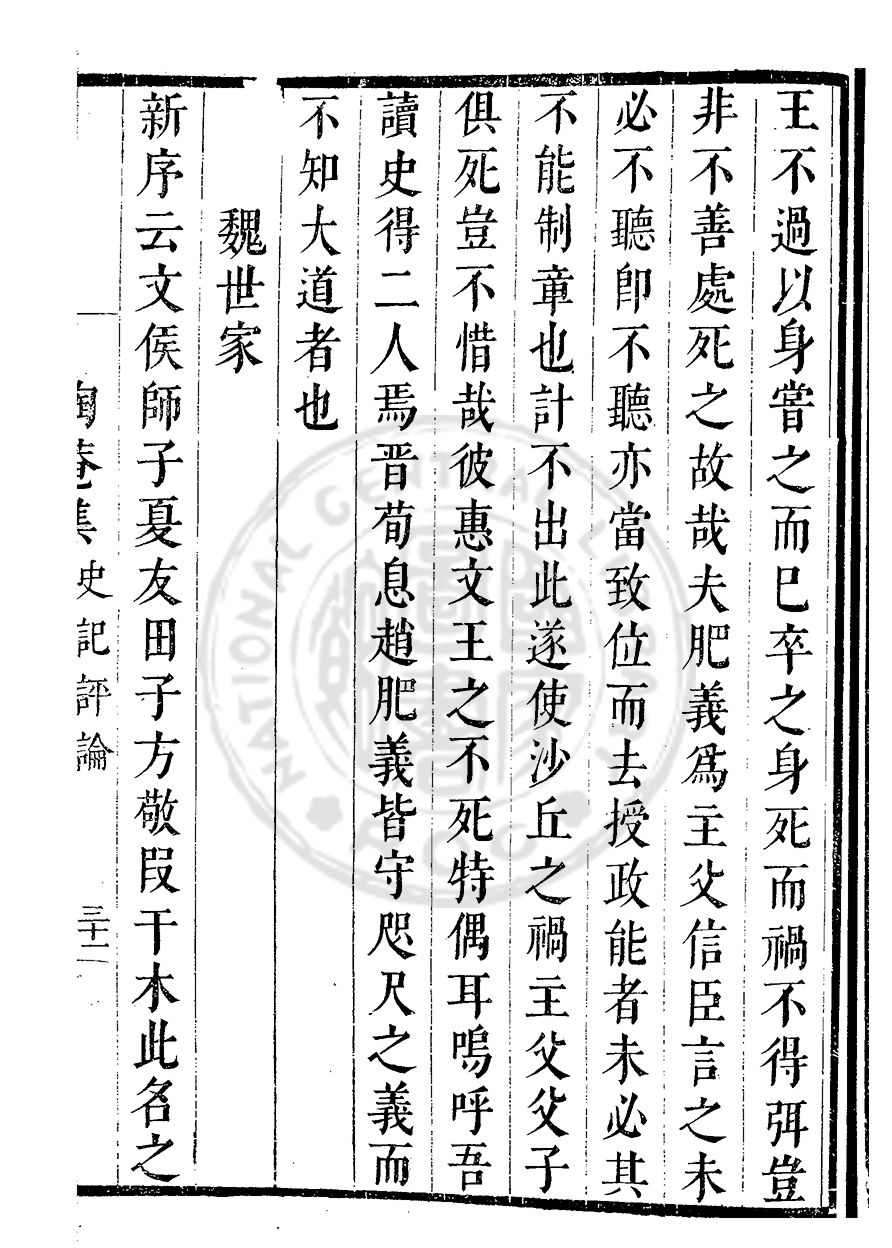 王不過以身嘗之而巳卒之身死而禍不得弭豈
非不善處死之故哉夫肥義爲主父信臣言之未
必不聽卽不聽亦當致位而去授政能者未必其
不能制章也計不出此遂使沙丘之禍主父父子
俱死豈不惜哉彼惠文王之不死特偶耳嗚呼吾
讀史得二人焉晋荀息趙肥義皆守咫尺之義而
不知大道者也
魏世家
新序云文侯師子夏友田子方敬段干木此名之
陶菴集 史記評論 三十二
NATIONAL CENTRAL